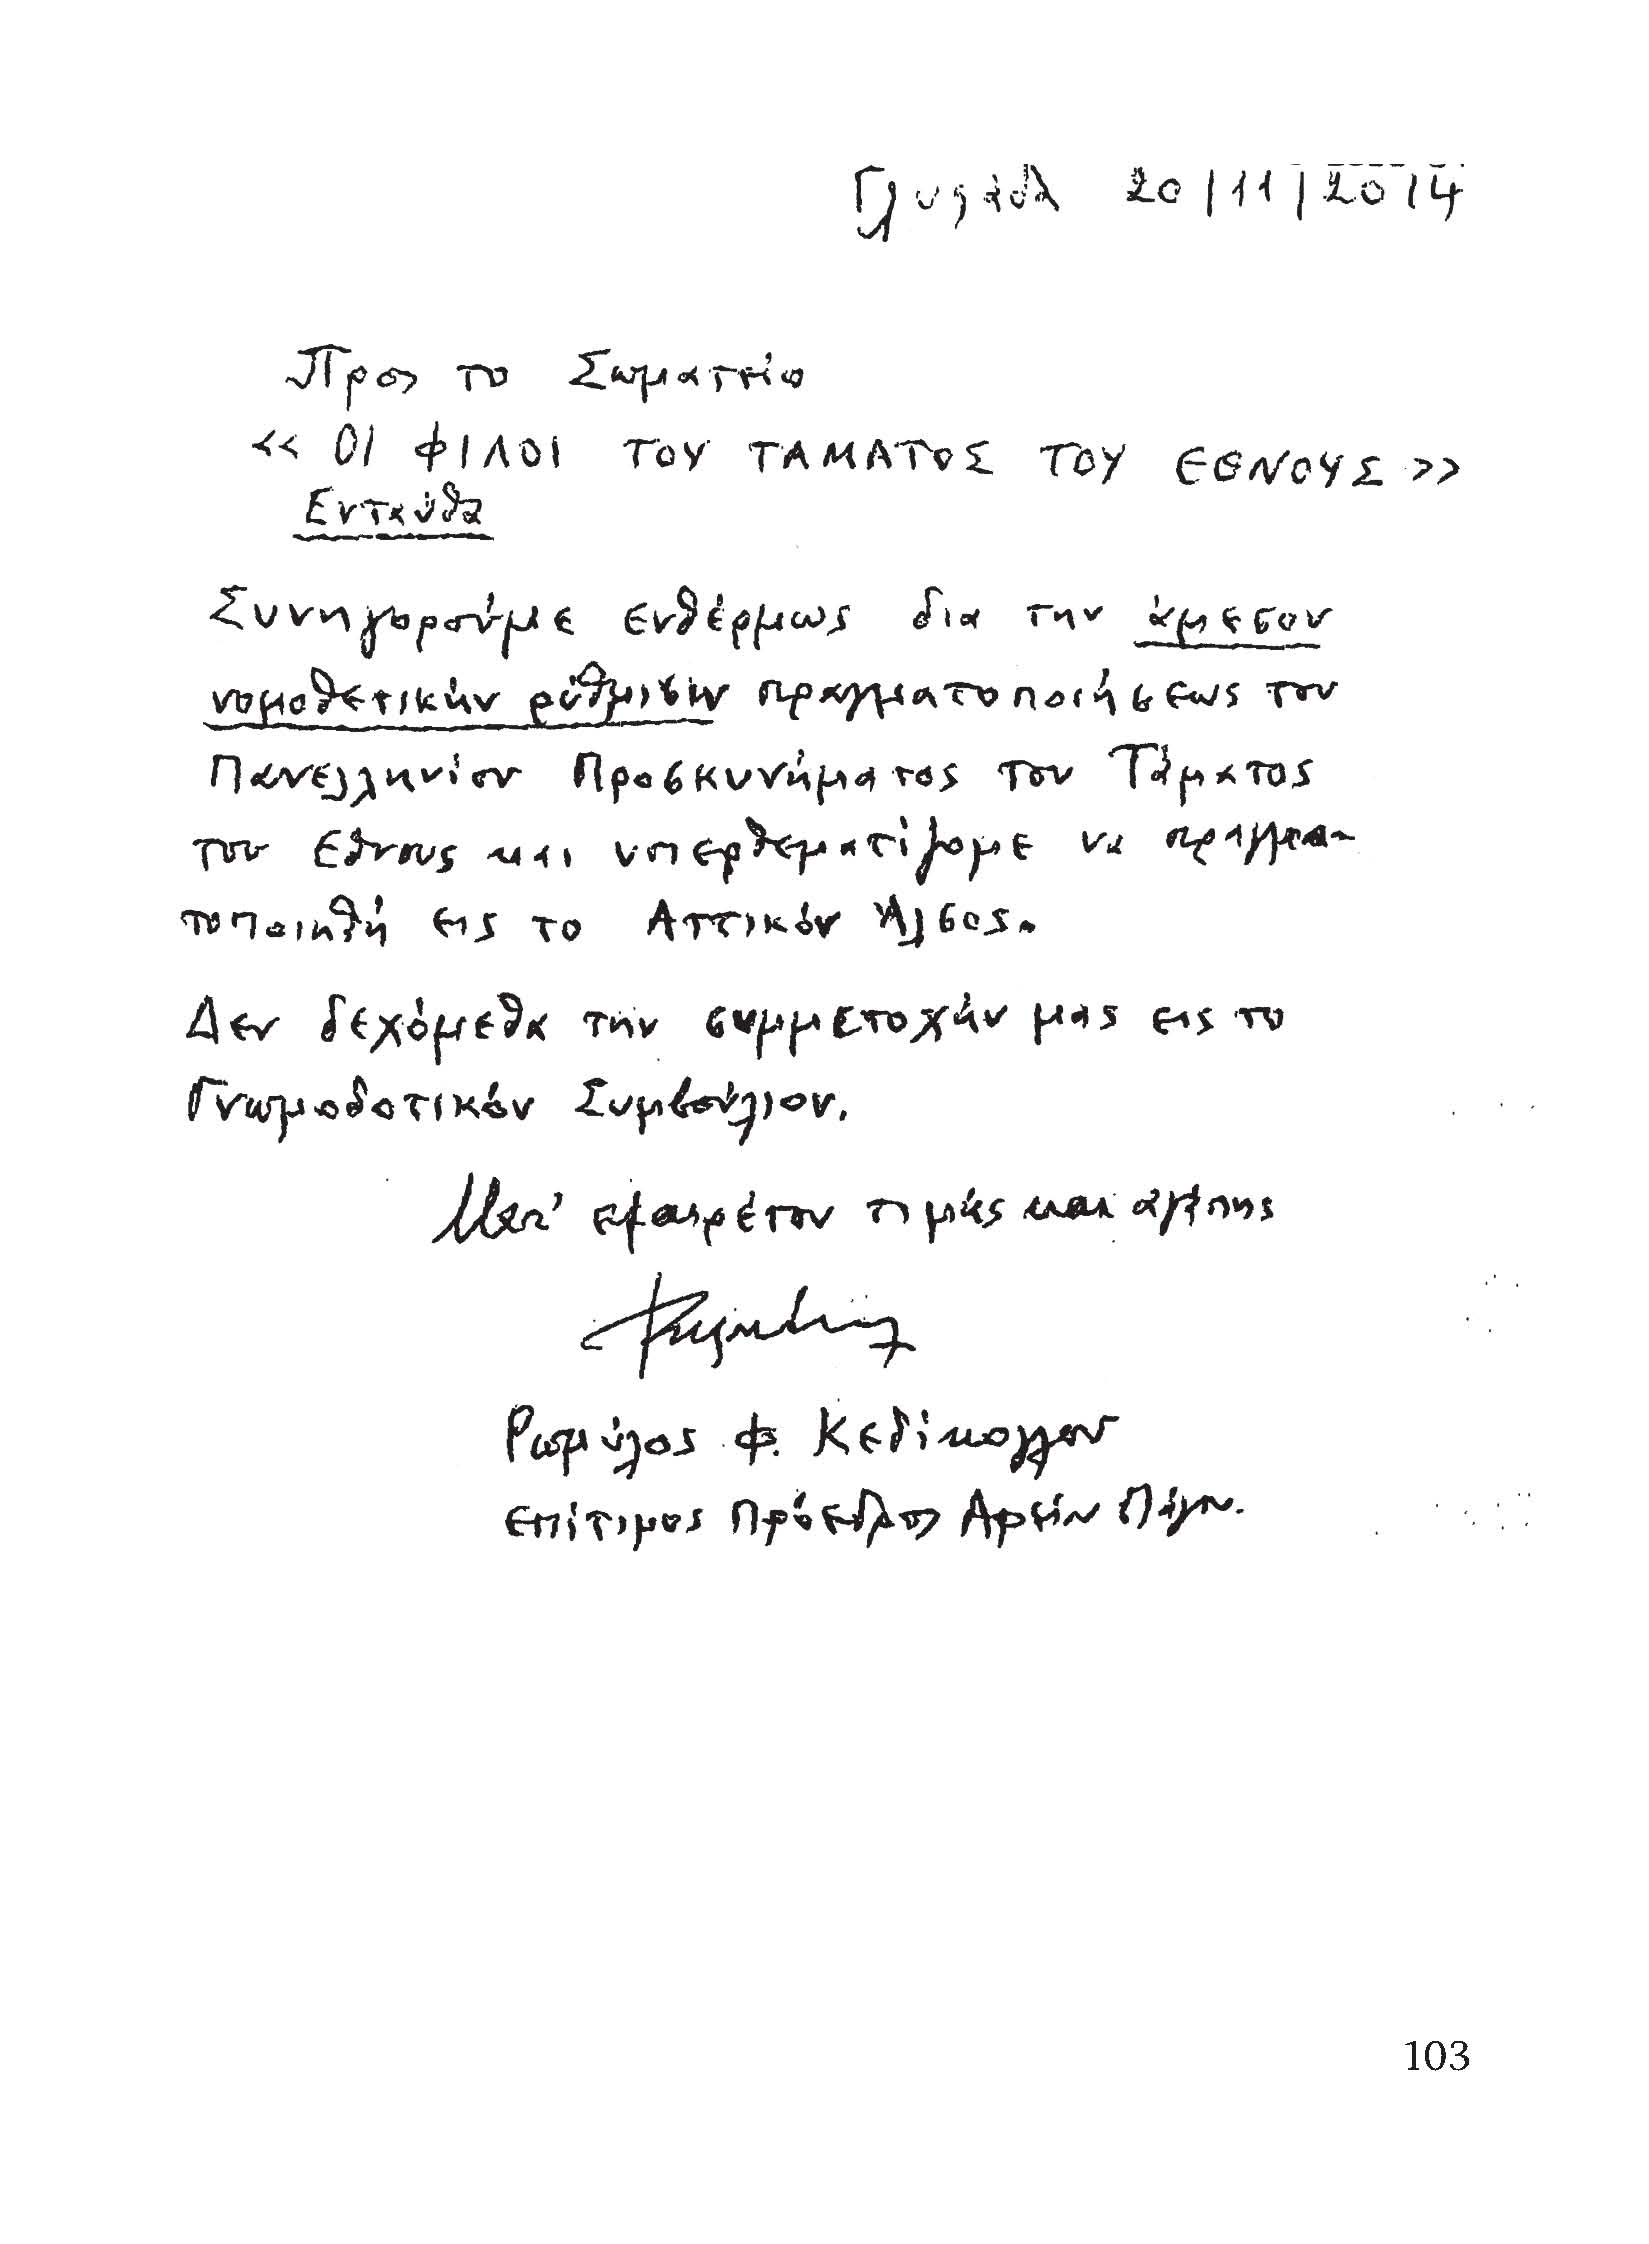 Γλυφάδα 20/11/2014
Προς το Σωματείο
<< ΟΙ ΦΙΛΟΙ ΤΟΥ ΤΑΜΑΤΟΣ ΤΟΥ ΕΘΝΟΥΣ >>
Ενταύθα
Συνηγορούμε ενθέρμως δια την άμεσον
νομοθετικήν ρύθμισιν πραγματοποιήσεως του
Πανελληνίου Προσκυνήματος του Τάματος
του Έθνους και υπερθεματίζομε να πραγμα-
τοποιηθή εις το Αττικόν Άλσος.
Δεν δεχόμεθα την συμμετοχήν μας εις το
Γνωμοδοτικόν Συμβούλιον.
Μετ' εξαιρέτου τιμής και αγάπης
Ρωμύλος Φ. Κεδίκογλου
Επίτιμος Πρόεδρος Αρείου Πάγου.
103